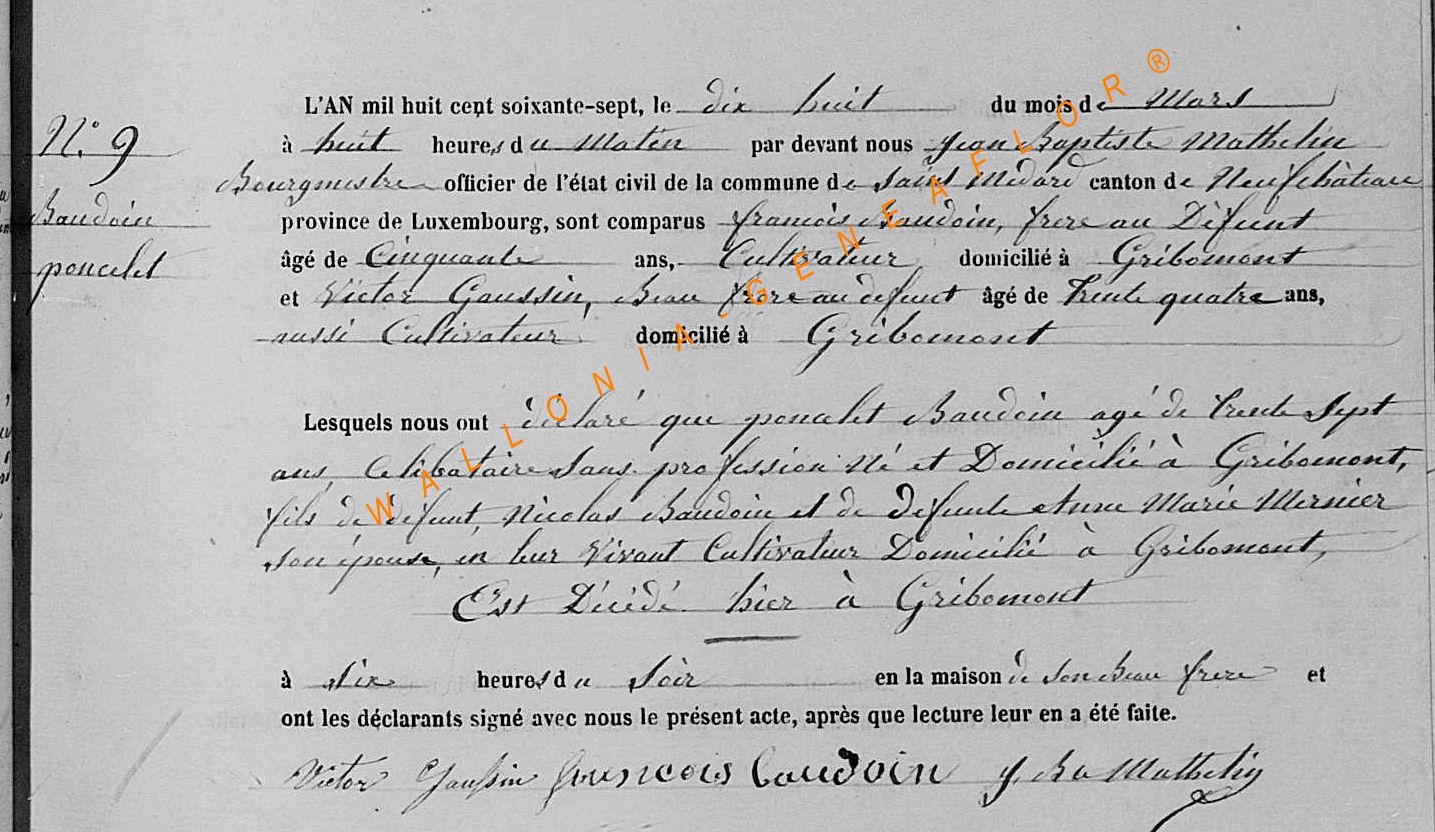 L'AN mil huit cent soixante-sept, le dix huit du mois de Mars
N° 9
à huit heures du Matin par devant nous Jean Baptiste Mathelin
Bourgmestre officier de l'état civil de la commune de Saint Médard canton de Neufchâteau
Baudoin
province de Luxembourg, sont comparus francois Baudoin, frere au Défunt
poncelet
âgé de Cinquante ans, Cultivateur domicilié à Gribomont
et Victor Gaussin, Beau frere au defunt âgé de trente quatre ans,
aussi Cultivateur domicilié à Gribomont
Lesquels nous ont déclaré que poncelet Baudoin agé de trente Sept
ans, Celibataire Sans profession Né et Domicilié à Gribomont,
fils de défunt, Nicolas Baudoin et de Defunte Anne Marie Mernier
son épouse, en leur Vivant Cultivateur Domicilié à Gribomont,
Est Décédé hier à Gribomont
à Six heures du Soir en la maison de Son Beau frere et
ont les déclarants signé avec nous le présent acte, après que lecture leur en a été faite.
Victor Gaussin francois baudoin J Ba Mathelin
WALLONIA-GENEAFLOR®